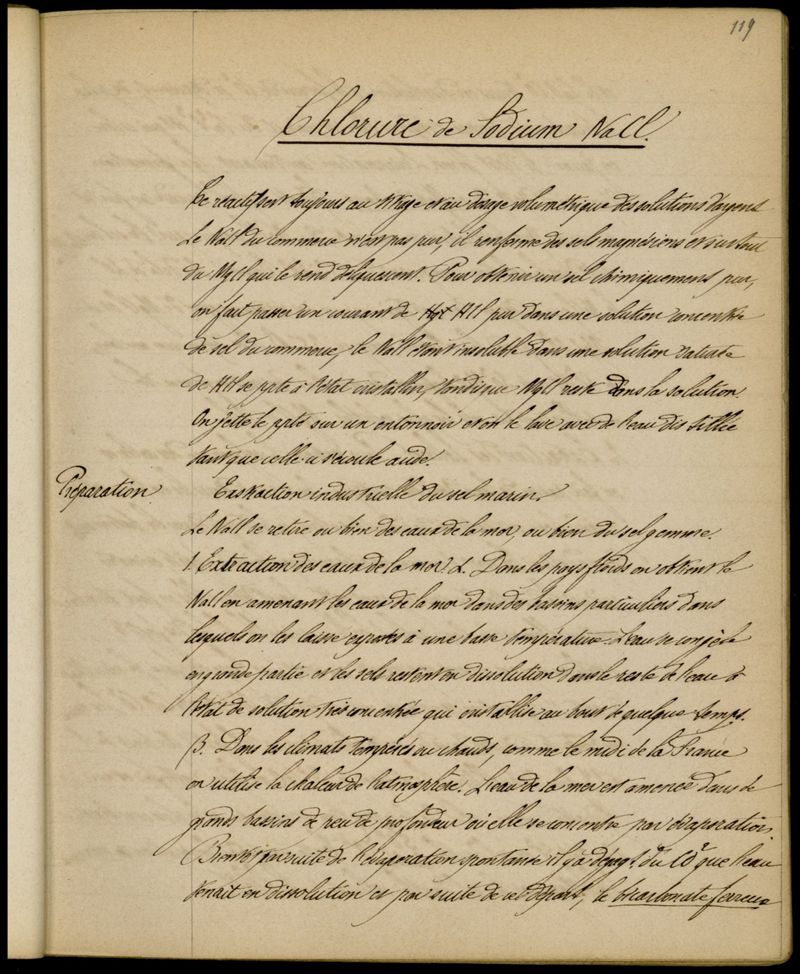 119
Chlorure de Sodium NaCl.
Ce réactif sert toujours au titrage et au dosage volumétrique des solutions d'argent
Le NaCl du commerce n'est pas pur, il renferme des sels magnésiens et surtout
du MgCl qui le rend déliquescent. Pour obtenir un sel chimiquement pur,
on fait passer un courant de HCl pur dans une solution concentrée
de sel du commerce, le NaCl étant insoluble dans une solution saturée
de HCl se ppte à l'état cristallin, tandis que MgCl reste dans la solution.
On jette le ppté sur un entonnoir et on le lave avec de l'eau distillée
tant que celle-ci s'écoule acide.
Préparation
Extraction industrielle du sel marin.
Le NaCl se retire ou bien des eaux de la mer, ou bien du sel gemme.
1. Extraction des eaux de la mer. α. Dans les pays froids on obtient le
NaCl en amenant les eaux de la mer dans des bassins particuliers dans
lesquels on les laisse exposées à une basse température. L'eau se congèle
en grande partie et les sels restent en dissolution dans le reste de l'eau à
l'état de solution très concentrée qui cristallise au bout de quelque temps.
β. Dans les climats tempérés ou chauds, comme le midi de la France
on utilise la chaleur de l'atmosphère. L'eau de la mer est amenée dans de
grands bassins de peu de profondeur où elle se concentre par évaporation.
Bientôt par suite de l'évaporation spontanée il y a dégagt du CO² que l'eau
tenait en dissolution et par suite de ce départ, le bicarbonate ferreux